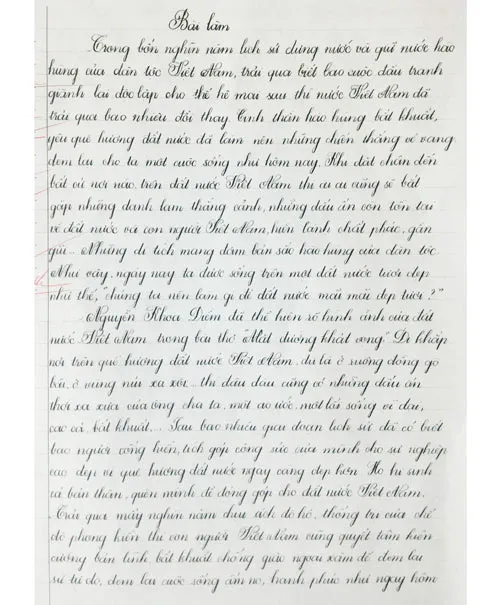 Bài làm
Trong bốn nghìn năm lịch sử dựng nước và giữ nước hào
hùng của dân tộc Việt Nam, trải qua biết bao cuộc đấu tranh
giành lại độc lập cho thế hệ mai sau thì nước Việt Nam đã
trải qua bao nhiêu đổi thay. Tinh thần hào hùng bất khuất,
yêu quê hương đất nước đã làm nên những chiến thắng vẻ vang
đem lại cho ta một cuộc sống như hôm nay. Khi đặt chân đến
bất cứ nơi nào, trên đất nước Việt Nam thì ai ai cũng sẽ bắt
gặp những danh lam thắng cảnh, những dấu ấn còn tồn tại
về đất nước và con người Việt Nam, hiền lành chất phác, gần
gũi... Những di tích mang đậm bản sắc hào hùng của dân tộc.
Như vậy, ngày nay ta được sống trên một đất nước tươi đẹp
như thế, "chúng ta nên làm gì để đất nước mãi mãi đẹp tươi?"
Nguyễn Khoa Điềm đã thể hiện rõ hình ảnh của đất
nước Việt Nam trong bài thơ "Mặt đường khát vọng". Đi khắp
nơi trên quê hương đất nước Việt Nam, dù là ở ruộng đồng gò
bãi, ở vùng núi xa xôi... thì đâu đâu cũng có những dấu ấn
thời xa xưa của ông cha ta, một ao ước, một lối sống vĩ đại,
cao cả, bất khuất... Sau bao nhiêu giai đoạn lịch sử đã có biết
bao người cống hiến, tích góp công sức của mình cho sự nghiệp
cao đẹp vì quê hương đất nước ngày càng đẹp hơn. Họ hi sinh
cả bản thân, quên mình để đóng góp cho đất nước Việt Nam.
Trải qua mấy nghìn năm đô hộ, thống trị của chế
độ phong kiến thì con người Việt Nam cũng quyết tâm kiên
cường bản lĩnh bất khuất chống giặc ngoại xâm để đem lại
sự tự do, đem lại cuộc sống ấm no, hạnh phúc như ngày hôm